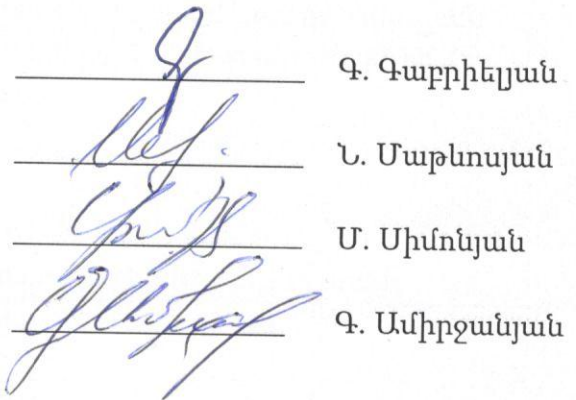 Գ. Գաբրիելյան
Ն. Մաթևոսյան
Մ. Սիմոնյան
Գ. Ամիրջանյան